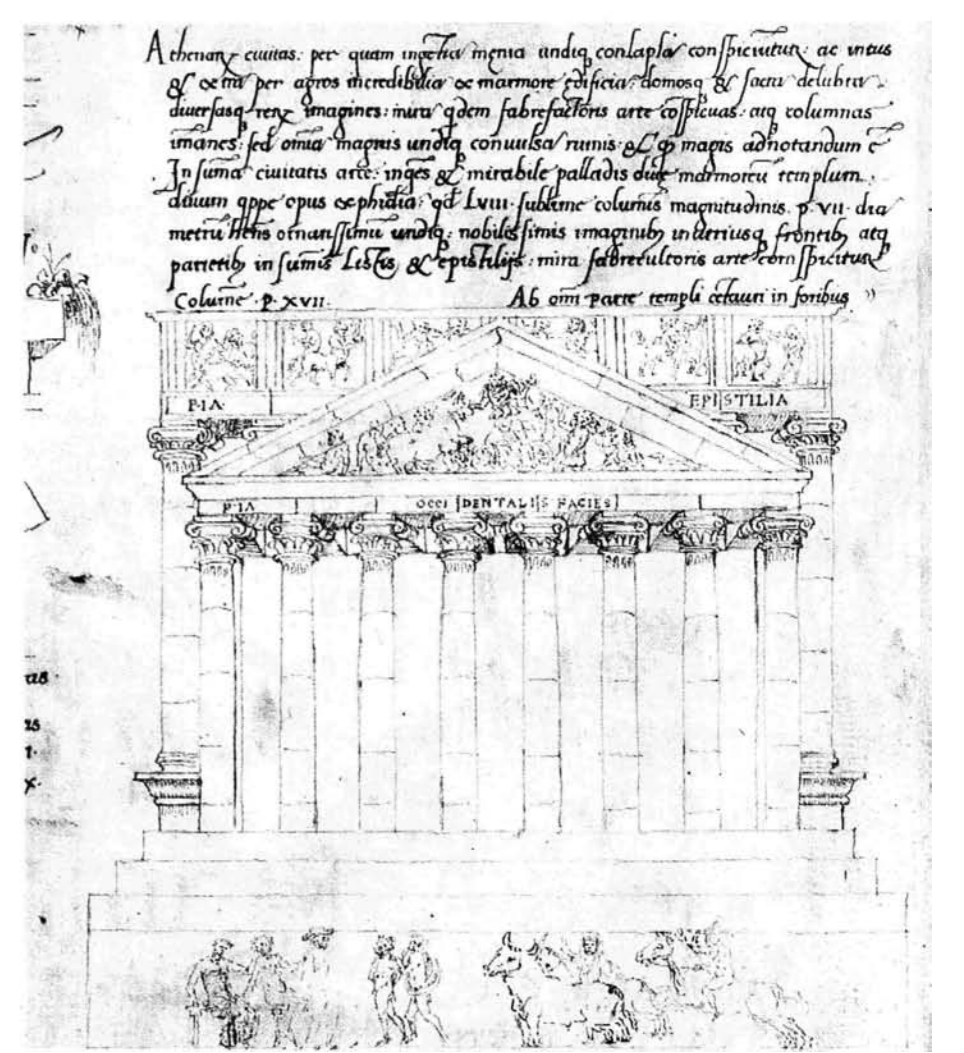 Athenarꝝ ciuitas: per quam ingẽtia męnia undiq conlapsa conspiciutur: ac intus
& extra per agros incredibilia ex marmore ędificia: domosq & sacra delubra.
diuersasq rerꝝ imagines: mira qdem fabrefactoris arte cõspicuas. atq columnas
imanes: sed omia magnis undiq conuulsa ruinis. & qp magis adnotandum ẽ
In suma ciuitatis arce: ingẽs & mirabile palladis diuę marmoreũ templum.
diuum qppe opus ex phidia: qd LVIII. sublime columis magnitudinis. p. VII. dia
metrũ hñs ornatissimũ undiq: nobilissimis imaginibꝫ in utriusq frontibꝫ atq
parietibꝫ in sumis Listis, & epistilijs: mira fabrescultoris arte conspicitur
Columẽ. P. XVII. Ab omi parte templi cẽtauri in foribus
P. IA. EPISTILIA
P. IA OCCIDENTALIS FACIES
as.
as
1.
x.